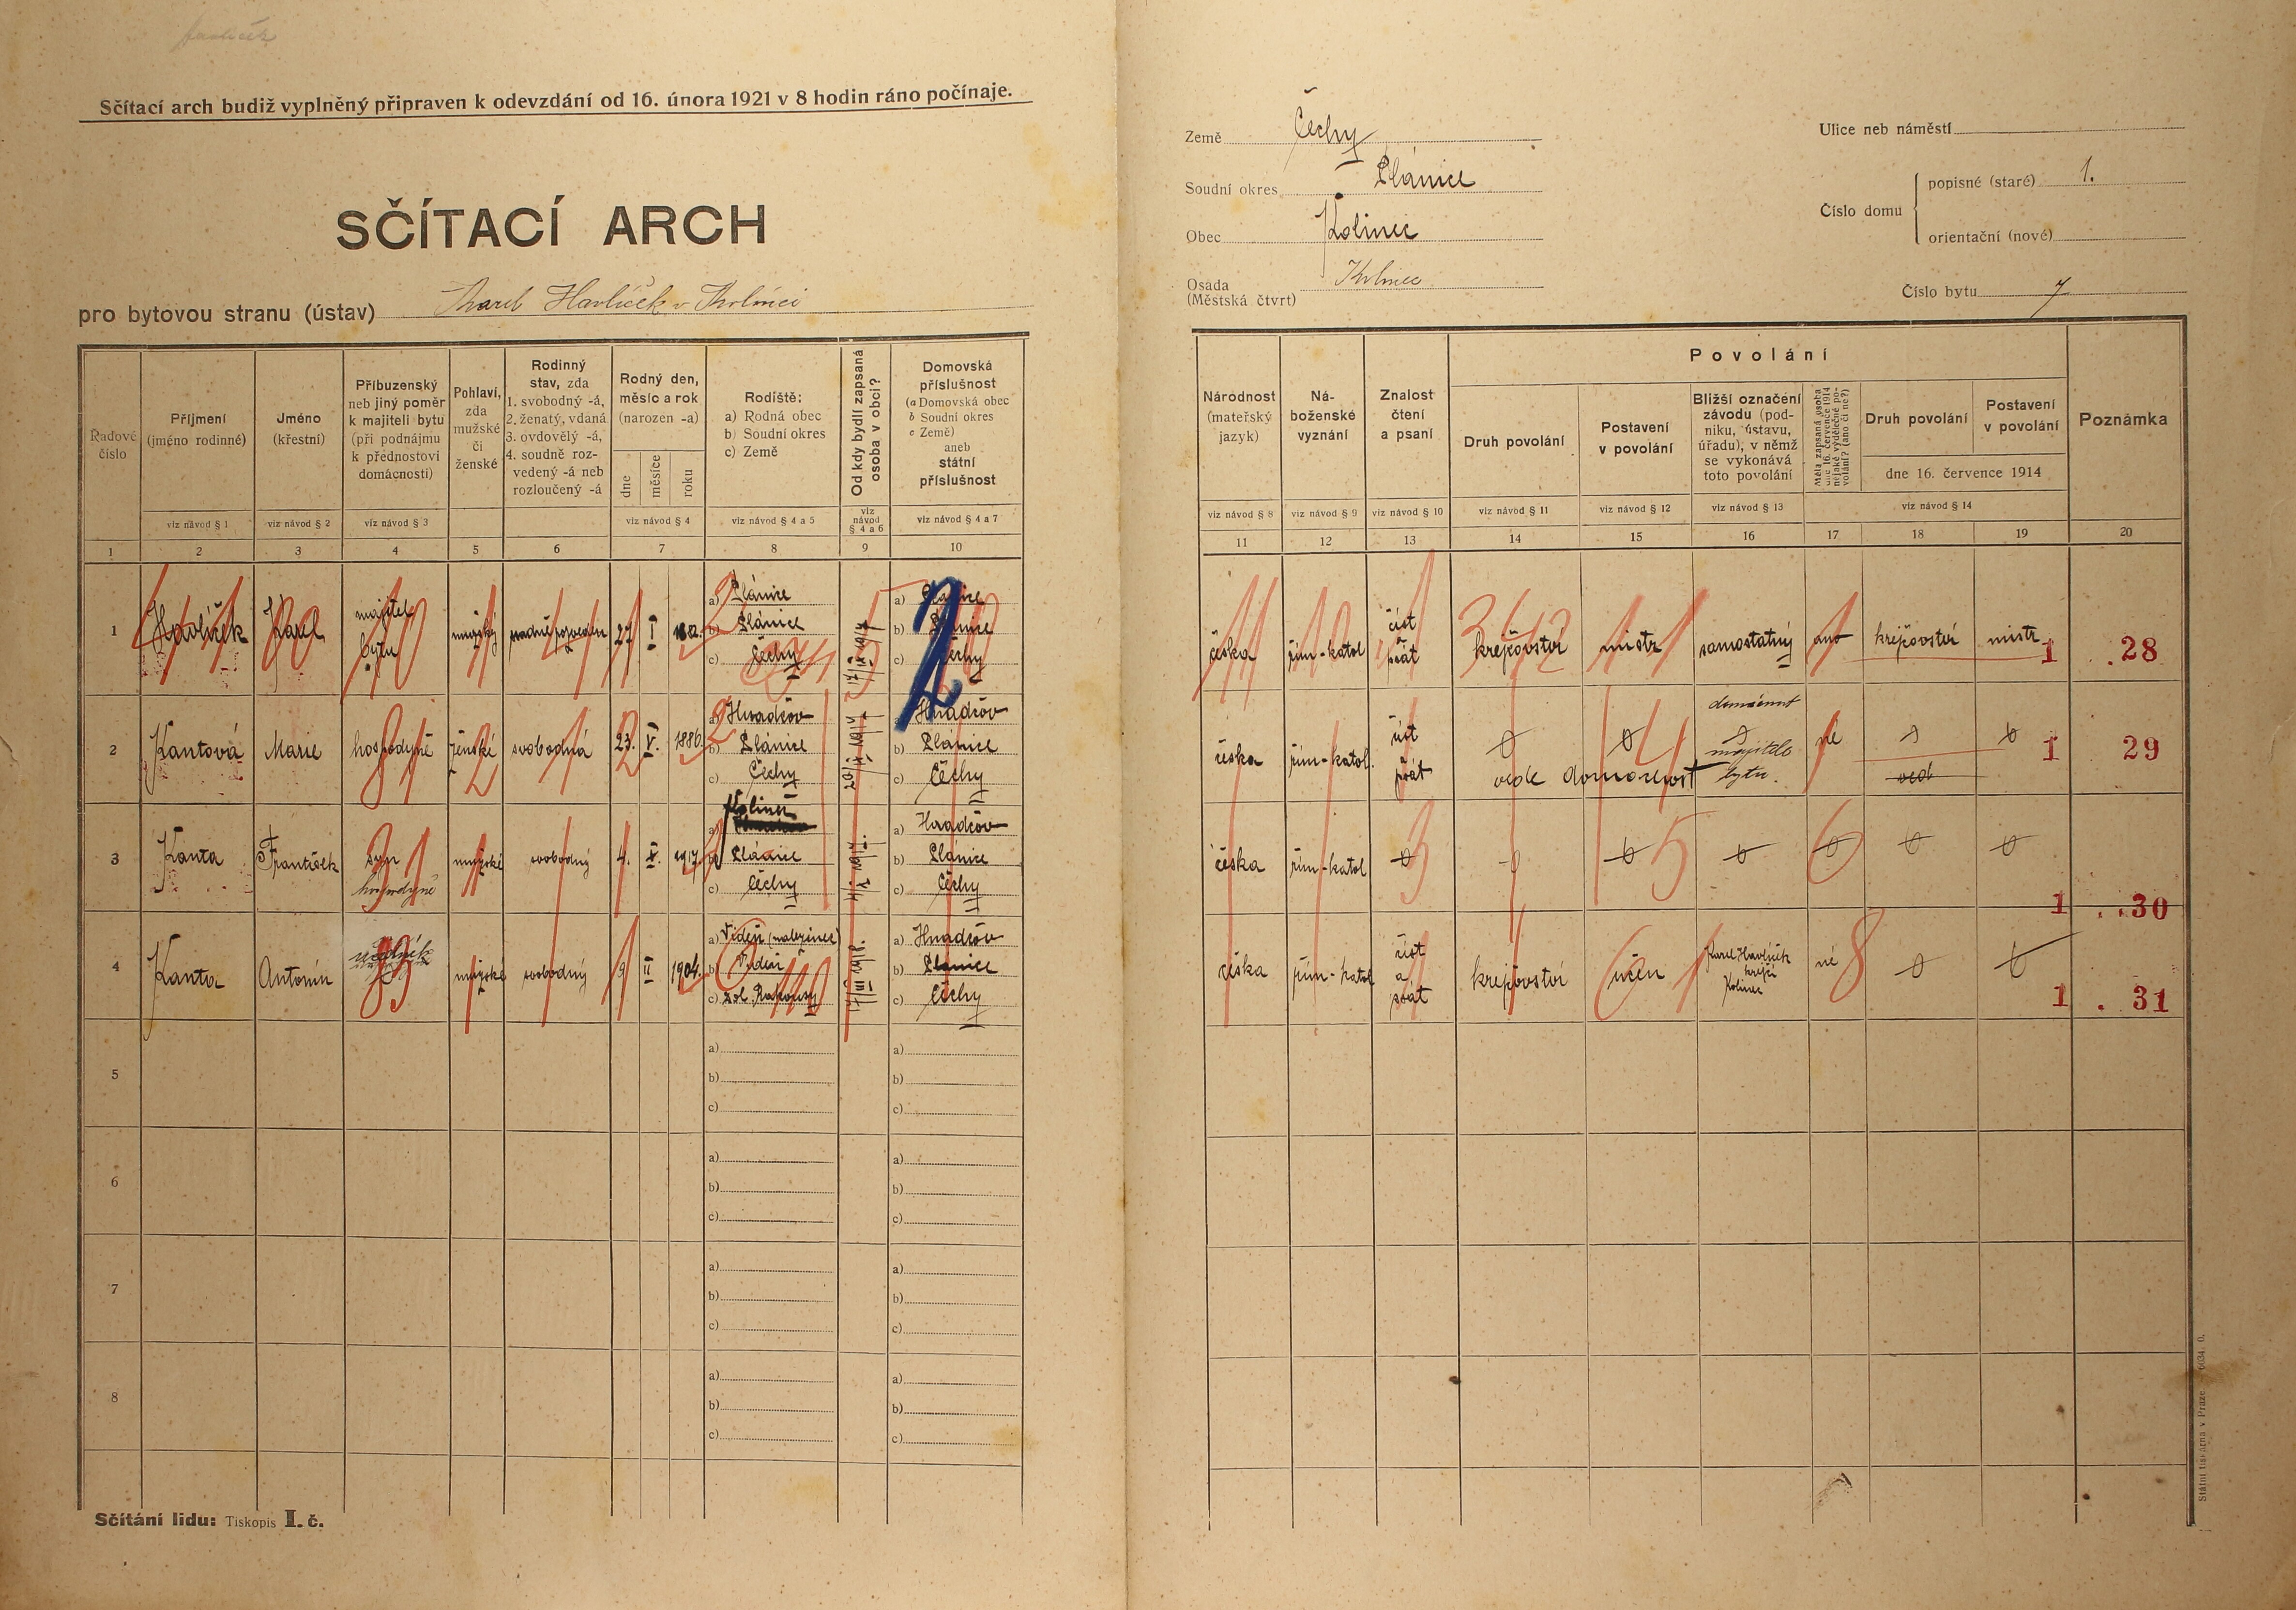 Havlíček
Sčítací arch budiž vyplněný připraven k odevzdání od 16. února 1921 v 8 hodin ráno počínaje.
SČÍTACÍ ARCH
pro bytovou stranu (ústav) Karel Havlíček v Kolinci
Země Čechy
Soudní okres Plánice
Obec Kolinec
Osada Kolinec
(Městská čtvrť)
Ulice neb náměstí
Číslo domu
popisné (staré) 1.
orientační (nové)
Číslo bytu 7
Řadové číslo
Příjmení
(jméno rodinné)
viz návod § 1
Jméno
(křestní)
viz návod § 2
Příbuzenský
neb jiný poměr
k majiteli bytu
(při podnájmu
k přednostovi
domácnosti)
viz návod § 3
Pohlaví,
zda
mužské
či
ženské
Rodinný
stav, zda
1. svobodný -á,
2. ženatý, vdaná
3. ovdovělý -á,
4. soudně roz-
vedený -á neb
rozloučený -á
Rodný den,
měsíc a rok
(narozen -a)
dne
měsíce
roku
viz návod § 4
Rodiště:
a) Rodná obec
b) Soudní okres
c) Země
viz návod § 4 a 5
Od kdy bydlí zapsaná
osoba v obci?
viz
návod
§ 4 a 6
Domovská
příslušnost
(a Domovská obec
b Soudní okres
c Země)
aneb
státní
příslušnost
viz návod § 4 a 7
Národnost
(mateřský
jazyk)
viz návod § 8
Ná-
boženské
vyznání
viz návod § 9
Znalost
čtení
a psaní
viz návod § 10
Povolání
Druh povolání
viz návod § 11
Postavení
v povolání
viz návod § 12
Bližší označení
závodu (pod-
niku, ústavu,
úřadu), v němž
se vykonává
toto povolání
viz návod § 13
Měla zapsaná osoba
dne 16. července 1914
nějaké výdělečné po-
volání? (ano či ne?)
Druh povolání
Postavení
v povolání
dne 16. července 1914
viz návod § 14
Poznámka
1 2 3 4 5 6 7 8 9 10
11 12 13 14 15 16 17 18 19 20
1 Havlíček Karel
majitel
bytu
mužský
27 I 1882.
a) Plánice
b) Plánice
c) Čechy
a) Plánice
b) Plánice
c) Čechy
česka řím-katol
číst
psát
krejčovství mistr samostatný ano krejčovství mistr 1 28
2 Kantová Marie hospodyně ženské svobodná 23. V. 1886.
a) Hnačov
b) Plánice
c) Čechy
a) Hnačov
b) Plánice
c) Čechy
česka řím-katol.
číst
psát
vede domácnost
majitele
bytu.
ne
1 29
3 Kanta František
syn
hospodyně
mužské svobodný 4. X. 1917
Kolinec
b) Plánice
c) Čechy
a) Hnačov
b) Plánice
c) Čechy
česka řím-katol
1 30
4 Kanta Antonín
mužské svobodný 9 II 1904.
a) Vídeň (nalezinec)
b) Vídeň
c) Dol. Rakousy
a) Hnačov
b) Plánice
c) Čechy
česka řím-katol
číst
a
psát
krejčovství učen
Karel Havlíček
krejčí
Kolinec
ne
1 31
5
a)
b)
c)
a)
b)
c)
6
a)
b)
c)
a)
b)
c)
7
a)
b)
c)
a)
b)
c)
8
a)
b)
c)
a)
b)
c)
Sčítání lidu: Tiskopis I. č.